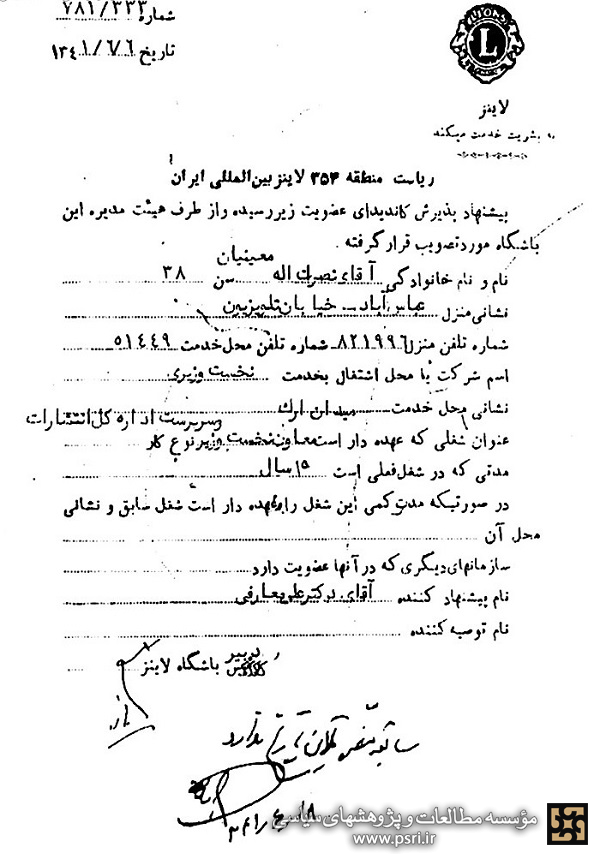 شماره ۷۸۱/۳۳۳
تاریخ ۱۳۴۱/۶/۶
LIONS
L
لاینز
به بشریت خدمت میکند
ریاست منطقه ۳۵۴ لاینز بین‌المللی ایران
پیشنهاد پذیرش کاندیدای عضویت زیر رسیده و از طرف هیئت مدیره این
باشگاه مورد تصویب قرار گرفته.
نام و نام خانوادگی آقای نصرت اله معینیان سن ۳۸
نشانی منزل عباس آباد - خیابان تلویزیون
شماره تلفن منزل ۸۲۱۹۹۶ شماره تلفن محل خدمت ۵۱۴۴۹
اسم شرکت یا محل اشتغال بخدمت نخست وزیری
نشانی محل خدمت میدان ارك
عنوان شغلی که عهده دار است معاون نخست وزیر و سرپرست اداره کل انتشارات نوع کار
مدتی که در شغل فعلی است ۱۵ سال
در صورتیکه مدت کمی این شغل را بعهده دار است شغل سابق و نشانی
محل آن
سازمانهای دیگری که در آنها عضویت دارد
نام پیشنهاد کننده آقای دکتر علی معارفی
نام توصیه کننده
دبیر باشگاه لاینز
سابقه ندارد
مؤسسه مطالعات و پژوهشهای سیاسی
www.psri.ir